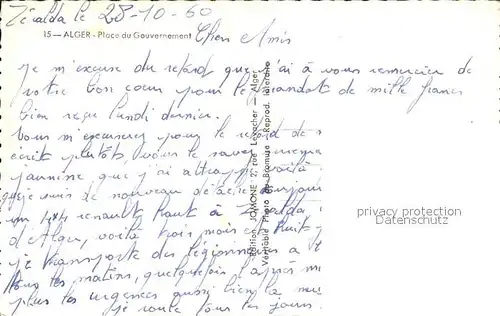 Zéralda le 28-10-60
15 — ALGER - Place du Gouvernement
Chers Amis
Je m'excuse du retard que j'ai à vous remercier de
votre bon cœur pour le mandat de mille francs
bien reçu lundi dernier.
Vous m'excuserez pour le retard de
écrit plutôt, vous le savez
jaunisse que j'ai attrapé voilà
je suis de nouveau détaché
un 4x4 renault haut à
d'Alger, voilà trois mois et huit
je transporte des légionnaires a
tous les matins, quelquefois l'après m
plus les urgences aussi bien la nui
je roule tous les jours.
Edition JOMONE 27, rue Levacher — Alger
Véritable Photo au Bromure - Reprod. Interdite
privacy protection
Datenschutz